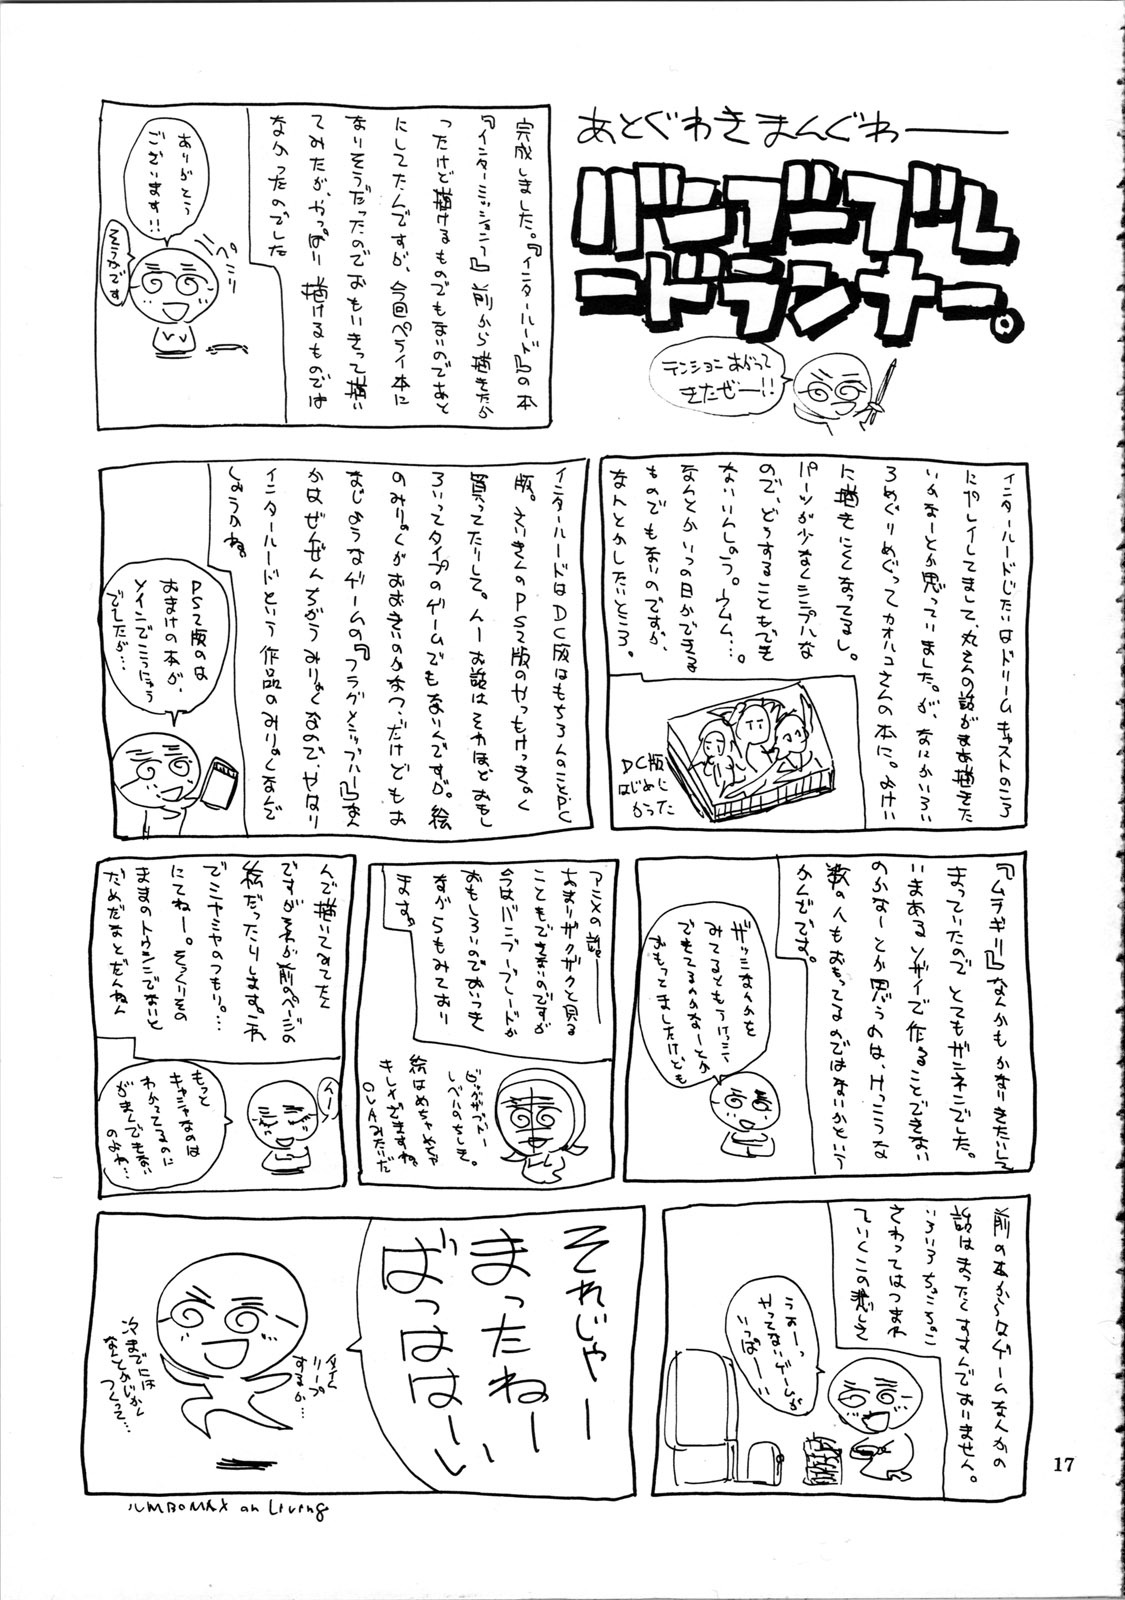 あとぐわきまんぐわ――
バンブーブレ
ードランナー。
テンションあがって
きたぜー!!
完成しました。『インタールード』の本
『インターミッショニー』前から描きたか
ったけど描けるものでもないのであと
にしてたんですが、今回ペライ本に
なりそうだったのでおもいきって描い
てみたが、やっぱり描けるものでは
なかったのでした
ありがとう
ございます!!
ぺこり
そうかです
インタールードじたいはドリームキャストのころ
にプレイしてまして、丸さんの話がまあ描きた
いかなーとか思っていました。が、なにかいろい
ろめぐりめぐってカオルコさんの本に。
に描きにくくなってるし。
パーツが少なくシンプルな
ので、どうすることもでき
ないいんしょう。ウムム…。
なんとかいつの日かできる
ものでもないのですが、
なんとかしたいところ。
DC版
はじめに
かうた
インタールードはDC版はもちろんのことPC
版。さいきんのPS2版のやつもけっきょく
買ってたりして。んーお話はそれほどおもし
ろいってタイプのゲームでもないんですが。絵
のみりょくがおおきいのかなつ、だけどもお
なじようなゲームの『フラグとミップルー』なん
かはぜんぜんちがうみりょくなので、やはり
インタールードという作品のみりょくなんで
しょうかね。
PS2版のは
おまけの本が、
メインでこうにゅう
でしたが…
『ムラギリ』なんかもかなりきたいして
まっていたのでとてもザンネンでした。
いまあるソザイで作ることできない
のかなーとか思うのは、けっこうな
数の人もおもってるのではないかという
かんじです。
みてるともうけっこう
できてるのかなーとか
おもってましたけども
アニメの話。――
あまりザクザクと見る
こともできないのですが
今はバンブーブレードが
おもしろいのでおいつき
ながらもみており
ます。
レベルのちしき。
絵はめちゃめちゃ
きしめてますね。
OVAみたいだ
んで描いてみてたん
ですがそれが前のページの
絵だったりします。これ
でミヤミヤのつもり。…
にてねー。そっくりその
ままのトゥーンでないと
だめだなとざんねん
んー
もっと
キャシャなのは
わかってるのに
がまんできない
のよね…
前の本からはゲームなんかの
話はまったくすすんでおりません。
いろいろちょこちょこ
さわってはつまれ
ていくこの悲しさ
うぉーっ
やってないゲームが
いっぱーい
それじゃー
まったねー
ばっははーい
タイム
リープ
するか…
次までには
なんとかじかん
つくって…
ルMBOMAX on Living
17